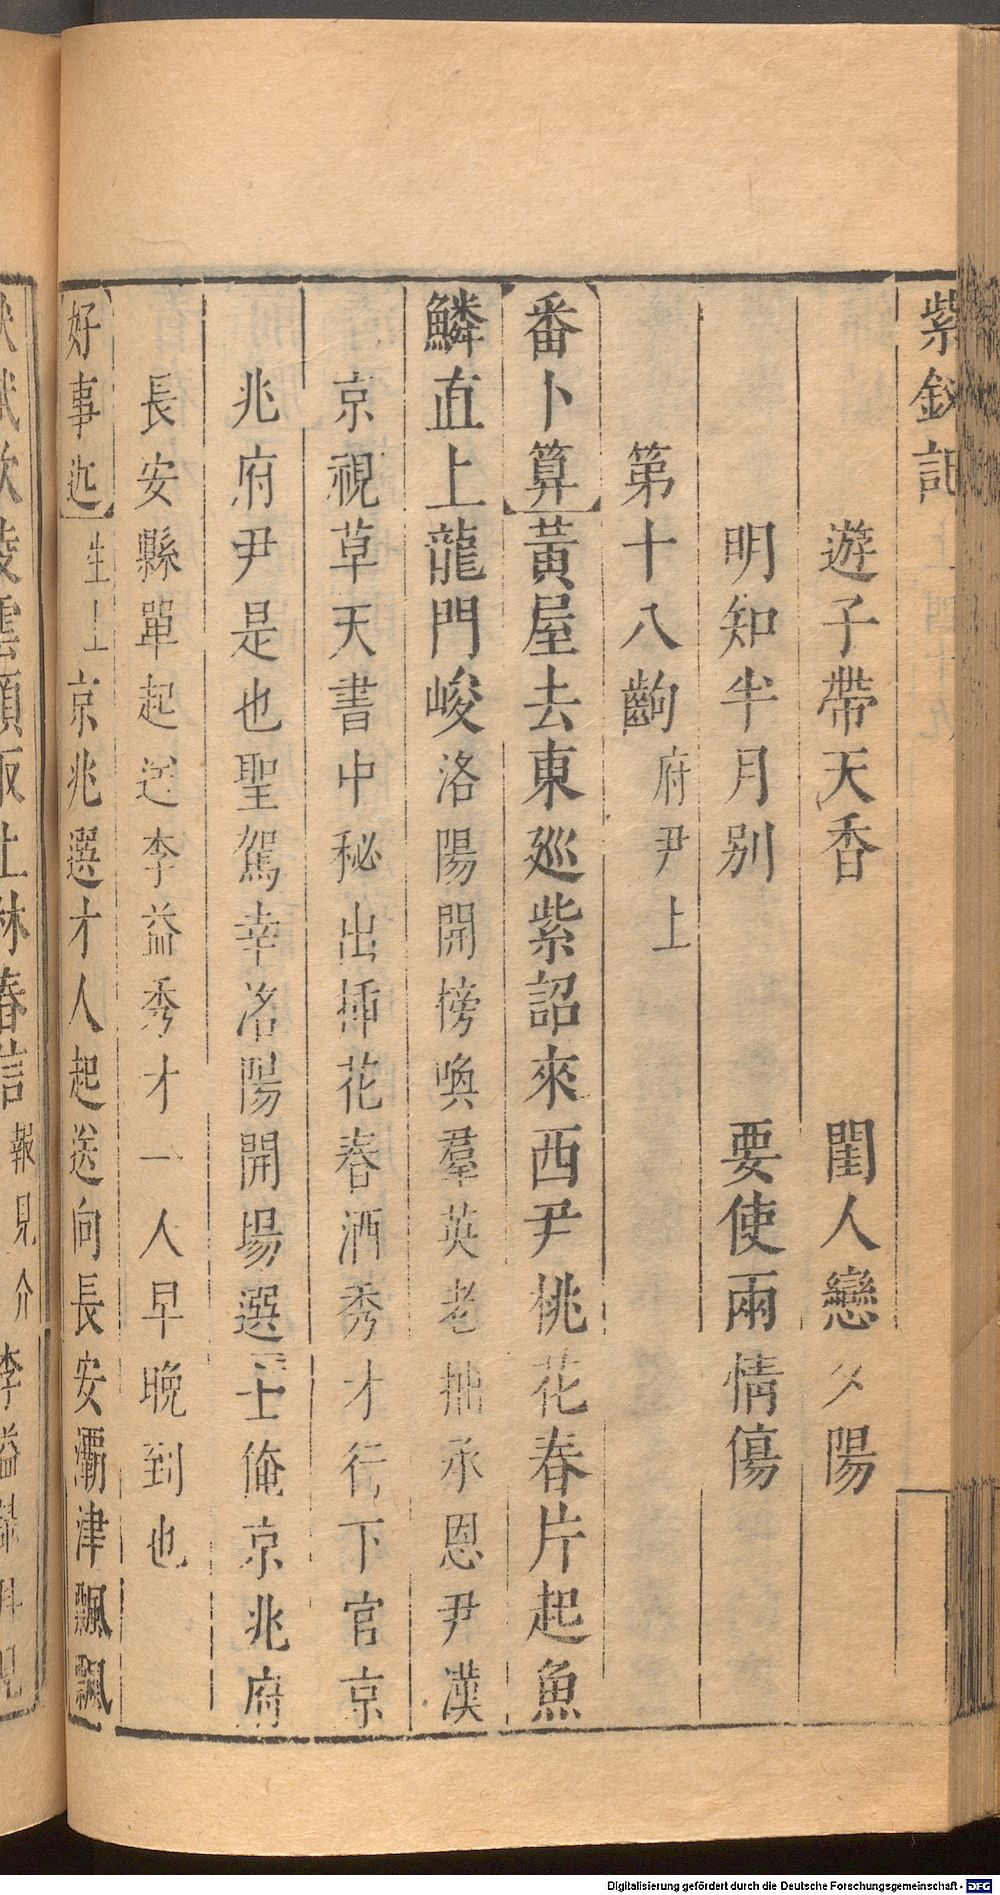 紫釵記
遊子帶天香 閨人戀夕陽
明知半月別 要使兩情傷
第十八齣 府尹上
番卜算 黃屋去東廵紫詔來西尹桃花春片起魚
鱗直上龍門峻 洛陽開榜喚羣英老拙承恩尹漢
京視草天書中秘出揷花春酒秀才行下官京
兆府尹是也聖駕幸洛陽開場選士俺京兆府
長安縣單起送李益秀才一人早晚到也
好事近 生上 京兆選才人起送向長安灞津飄飄
賦欲凌雲領取上林春信 報見介 李益
Digitalisierung gefördert durch die Deutsche Forschungsgemeinschaft - DFG